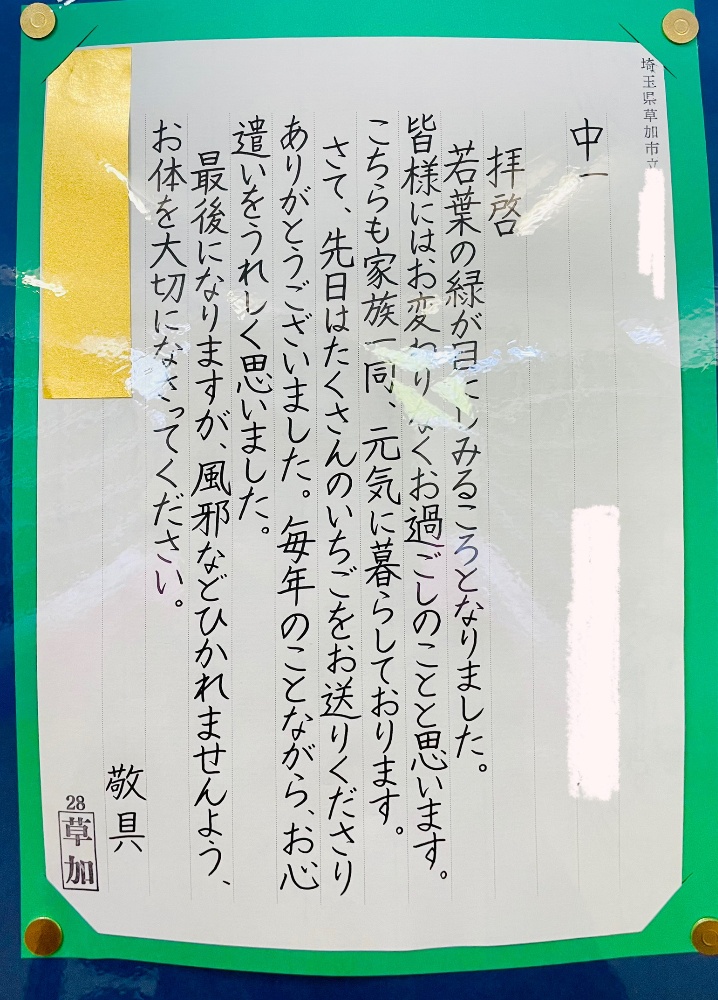 埼玉県草加市立
中一
拝啓
若葉の緑が目にしみるころとなりました。
皆様にはお変わりなくお過ごしのことと思います。
こちらも家族一同、元気に暮らしております。
さて、先日はたくさんのいちごをお送りくださり
ありがとうございました。毎年のことながら、お心
遣いをうれしく思いました。
最後になりますが、風邪などひかれませんよう、
お体を大切になさってください。
敬具
28
草加